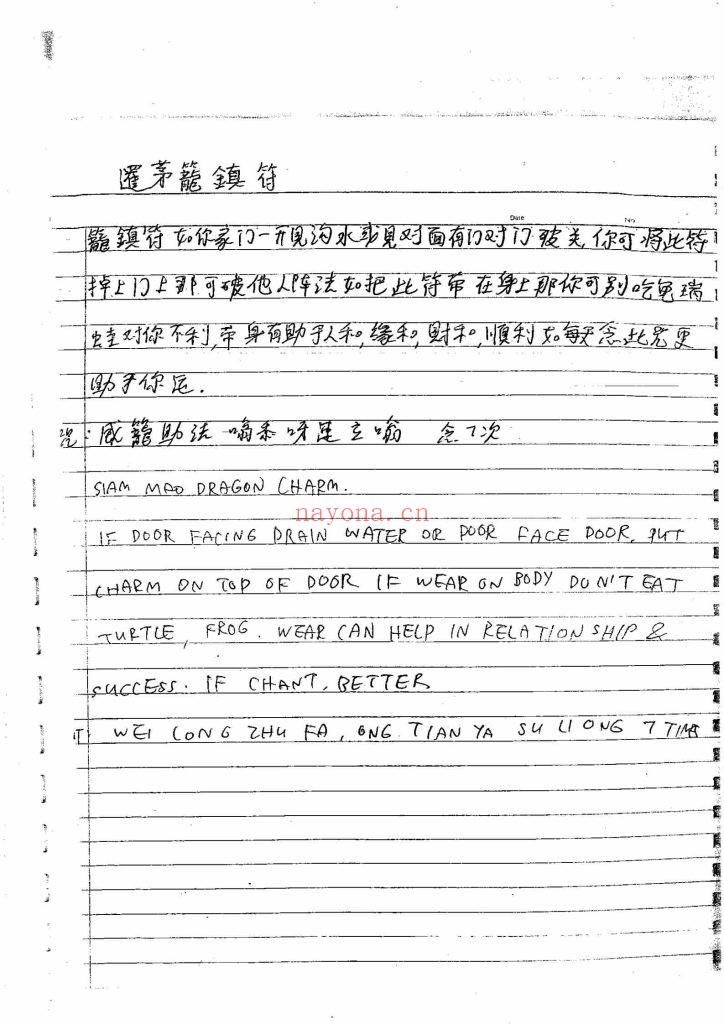 暹茅籠鎮符
Date No
籠鎮符如你家门一开見沟水或見对面有门对门破关,你可将此符
掉上门上那可破他人阵法如把此符带在身上那你可别吃龟瑞
蛙对你不利,带身有助于人和,缘和,財和,順利如每天念此咒更
助于你运.
咒:威籠助法 念7次
SIAM MAO DRAGON CHARM.
nayona.cn
IF DOOR FACING DRAIN WATER OR DOOR FACE DOOR, PUT
CHARM ON TOP OF DOOR IF WEAR ON BODY DON'T EAT
TURTLE, FROG. WEAR CAN HELP IN RELATIONSHIP &
SUCCESS. IF CHANT, BETTER
IT WEI LONG ZHU FA, ONG TIAN YA SU LIONG 7 TIMES